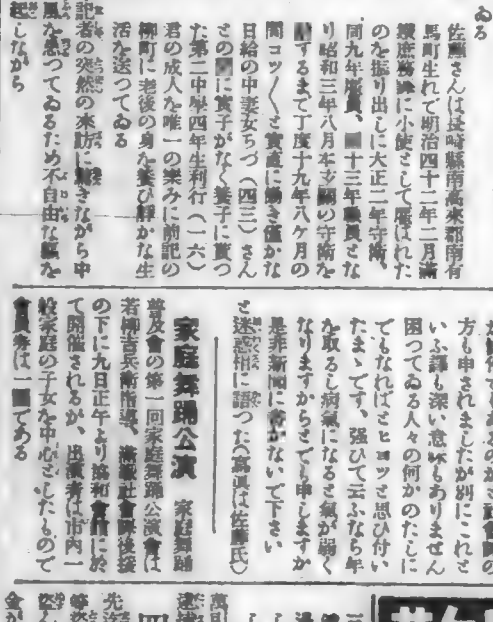 ゐる
佐藤さんは長崎縣南高來郡南有
馬町生れで明治四十二年二月滿
鐵庶務課に小使として雇はれた
のを振り出しに大正二年守衛、
同九年雇員、同十三年職員とな
り昭和三年八月本支關の守衛を
するまで丁度十九年八ケ月の
間コツ〱と實直に働き僅かな
日給の中妻女ちづ（四三）さん
との間に實子がなく養子に貰つ
た第二中學四年生利行（一六）
君の成人を唯一の樂みに前記の
柳町に老後の身を養ひ靜かな生
活を送つてゐる
記者の突然の來訪に驚きながら中
風を患つてゐるため不自由な軀を
起しながら
方も申されましたが別にこれと
いふ譯も深い意味もありません
困つてゐる人々の何かのたしに
でもなればとヒヨツと思ひ付い
たまゝです、强ひて云ふなら年
を取るし病氣になるし氣が弱く
なりますからとでも申しますか
是非新聞に書かないで下さい
と迷惑相に語つた（寫眞は佐藤氏）
家庭舞踊公演 家庭舞踊
普及會の第一回家庭舞踊公演會は
若柳吉兵衛指導、滿鐵社會課後援
の下に九日正午より協和會館に於
て開催されるが、出演者は市內一
般家庭の子女を中心としたもので
會員券は一圓である